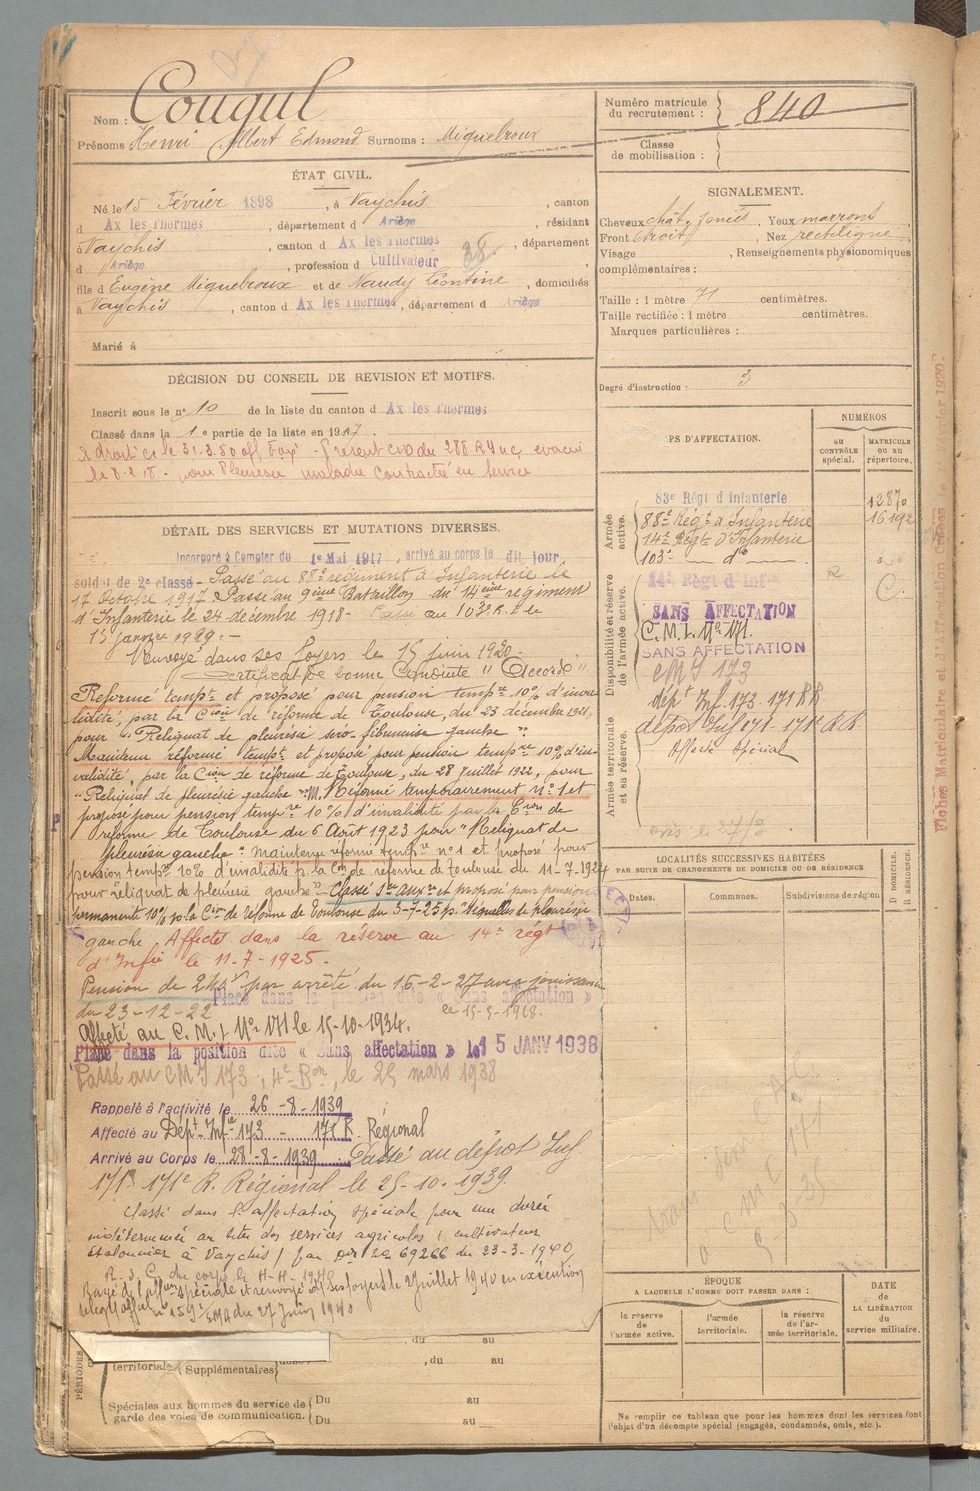 Nom : Cougul
Prénoms Henri Albert Edmond Surnoms : Miquelroux
Numéro matricule
du recrutement : 840
Classe
de mobilisation :
ÉTAT CIVIL.
Né le 15 Février 1898, à Vaychis, canton
d Ax les Thermes, département d Ariège, résidant
à Vaychis, canton d Ax les Thermes, département
d Ariège, profession d Cultivateur 38
fils d Eugène Miquelroux et de Naudy Léontine, domiciliés
à Vaychis, canton d Ax les Thermes, département d Ariège
Marié à
SIGNALEMENT.
Cheveux chât. foncés. Yeux marrons
Front étroit, Nez rectiligne
Visage, Renseignements physionomiques
complémentaires :
Taille : 1 mètre 71 centimètres.
Taille rectifiée : 1 mètre centimètres.
Marques particulières :
Degré d'instruction : 3
DÉCISION DU CONSEIL DE REVISION ET MOTIFS.
Inscrit sous le n° 10 de la liste du canton d Ax les Thermes
Classé dans la 1e partie de la liste en 1917
du 288 R
le 8.2.18. pour Pleurésie maladie contractée en service
DÉTAIL DES SERVICES ET MUTATIONS DIVERSES.
Incorporé à Compter du 1er Mai 1917, arrivé au corps le dit jour
soldat de 2e classe - Passé au 88e régiment d'Infanterie le
17 Octobre 1917 Passé au 9ème Bataillon du 14ième régiment
d'Infanterie le 24 décembre 1918 - Passé au 103e R. I. le
15 janvier 1929. -
Renvoyé dans ses foyers le 15 juin 1920 -
Certificat de bonne Conduite "Accordé"
Réformé tempt et proposé pour pension tempre 10% d'inva-
lidité, par la Cion de réforme de Toulouse, du 23 décembre 1921,
pour "Reliquat de pleurésie séro-fibrineuse gauche".
Maintenu réformé tempt et proposé pour pension tempre 10% d'in-
validité, par la Cion de réforme de Toulouse, du 28 Juillet 1922, pour
"Reliquat de pleurésie gauche". M. Réformé temporairement n° 1 et
proposé pour pension tempre 10% d'invalidité par la Cion de
réforme de Toulouse du 6 Août 1923 pour "Reliquat de
pleurésie gauche" Maintenu réformé tempre n° 1 et proposé pour
pension tempre 10% d'invalidité p. la Cion de réforme de Toulouse du 11-7-1924
pour reliquat de pleurésie gauche". Classé Sce auxre et proposé pour pension
permanente 10% p. la Cion de réforme de Toulouse du 3-7-25 p. Séquelles de pleurésie
gauche. Affecté dans la réserve au 14e régt
d'Infie le 11-7-1925.
Pension de par arrêté du 16-2-27 avec jouissance
du 23-12-22
Placé dans la position dite « Sans affectation »
le 15-5-1928.
Affecté au C.M.I. N° 171 le 15-10-1934.
Placé dans la position dite « Sans affectation » le 15 JANV 1938
Passé au CMI 173, 4e Bon, le 25 mars 1938
Rappelé à l'activité le 26-8-1939
Affecté au Dépt Infie 173 - 171 R. Régional
Arrivé au Corps le 28-8-1939 Passé au dépot Inf
171 171e R. Régional le 25-10-1939.
Classé dans l'affectation spéciale pour une durée
indéterminée au titre des services agricoles (cultivateur
à Vaychis) par 69266 du 23-3-1940
R. d. C. du corps le 1940
Rayé de l'affon spéciale et renvoyé ds ses foyers le 2 Juillet 1940 en exécution
du 27 Juin 1940
CORPS D'AFFECTATION.
NUMÉROS
AU
CONTRÔLE
spécial.
MATRICULE
OU AU
répertoire.
Armée
active.
83e Régt d'Infanterie 12870
88e Régt d'Infanterie 16192
14e Régt d'Infanterie
103e — do —
Disponibilité et réserve
de l'armée active.
14e Régt d'Infie
SANS AFFECTATION
C.M.I. N° 171.
SANS AFFECTATION
CMI 173
dépt Inf. 173. 171 RR
dépôt Inf 171 - 171e R.R
Affecté Spécial
Armée territoriale
et sa réserve.
LOCALITÉS SUCCESSIVES HABITÉES
PAR SUITE DE CHANGEMENTS DE DOMICILE OU DE RÉSIDENCE
Dates.
Communes.
Subdivisions de région
D. DOMICILE.
R. RÉSIDENCE.
C M I 171
ÉPOQUE
A LAQUELLE L'HOMME DOIT PASSER DANS :
la réserve
de
l'armée active.
l'armée
territoriale.
la réserve
de l'ar-
mée territoriale.
DATE
de
LA LIBÉRATION
du
service militaire.
Ne remplir ce tableau que pour les hommes dont les services font
l'objet d'un décompte spécial (engagés, condamnés, omis, etc.).
PÉRIODES
du au
territoriale Supplémentaires , du au
Spéciales aux hommes du service de
garde des voies de communication.
Du au
Du au
Fiches Matriculaire et d'Affectation